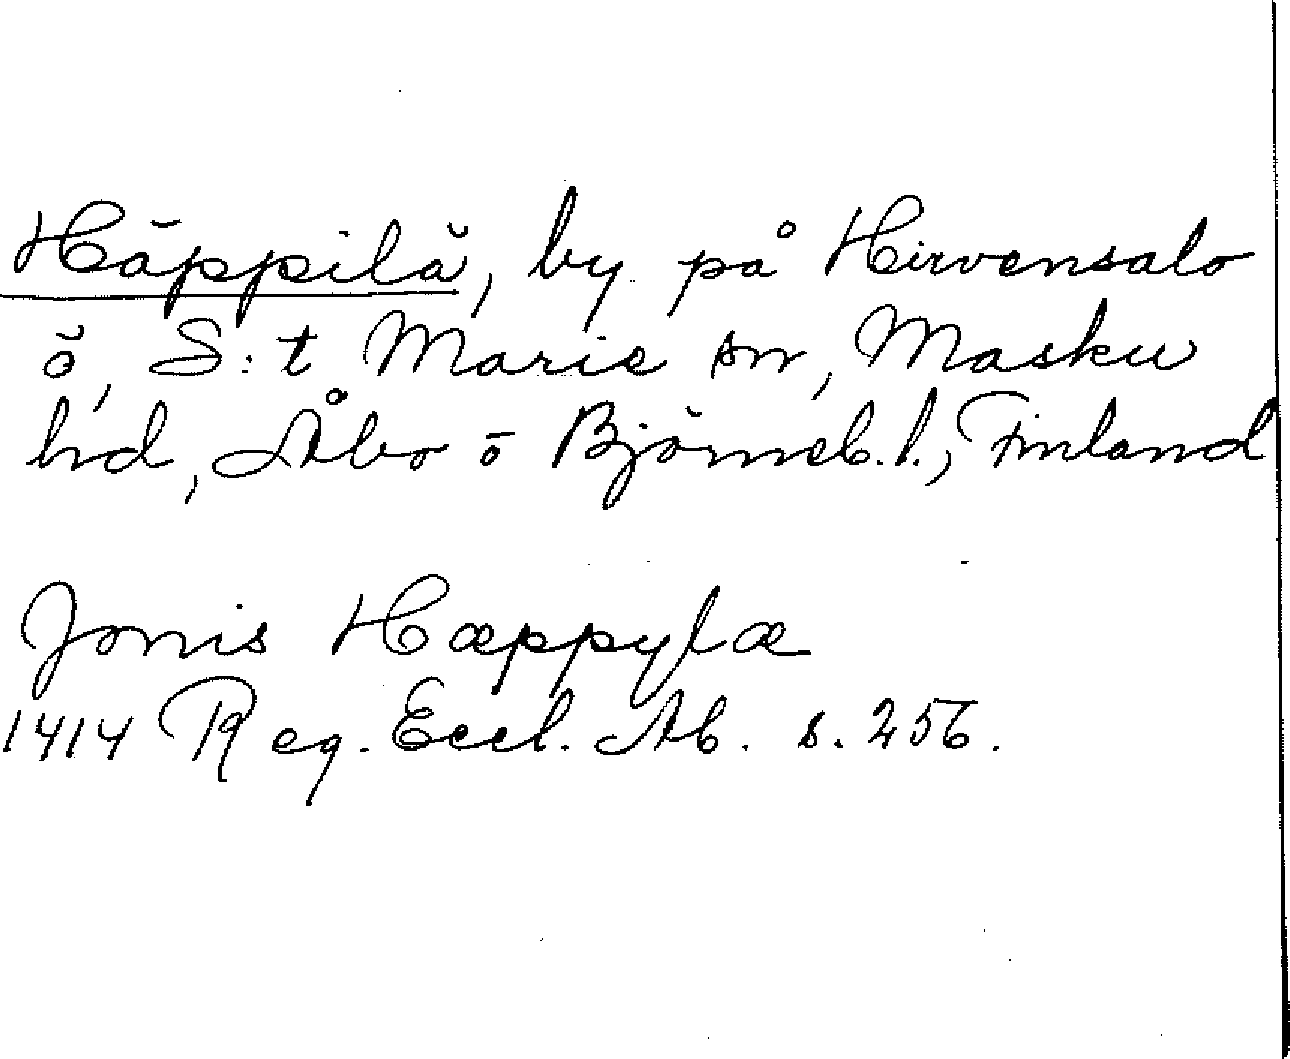 Häppilä, by på Hirvensalo
ö, S:t Marie sn, Masku
hd, Åbo o Björneb. l., Finland
Jonis Hæppylæ
1414 Reg. Eccl. Ab. s. 256.